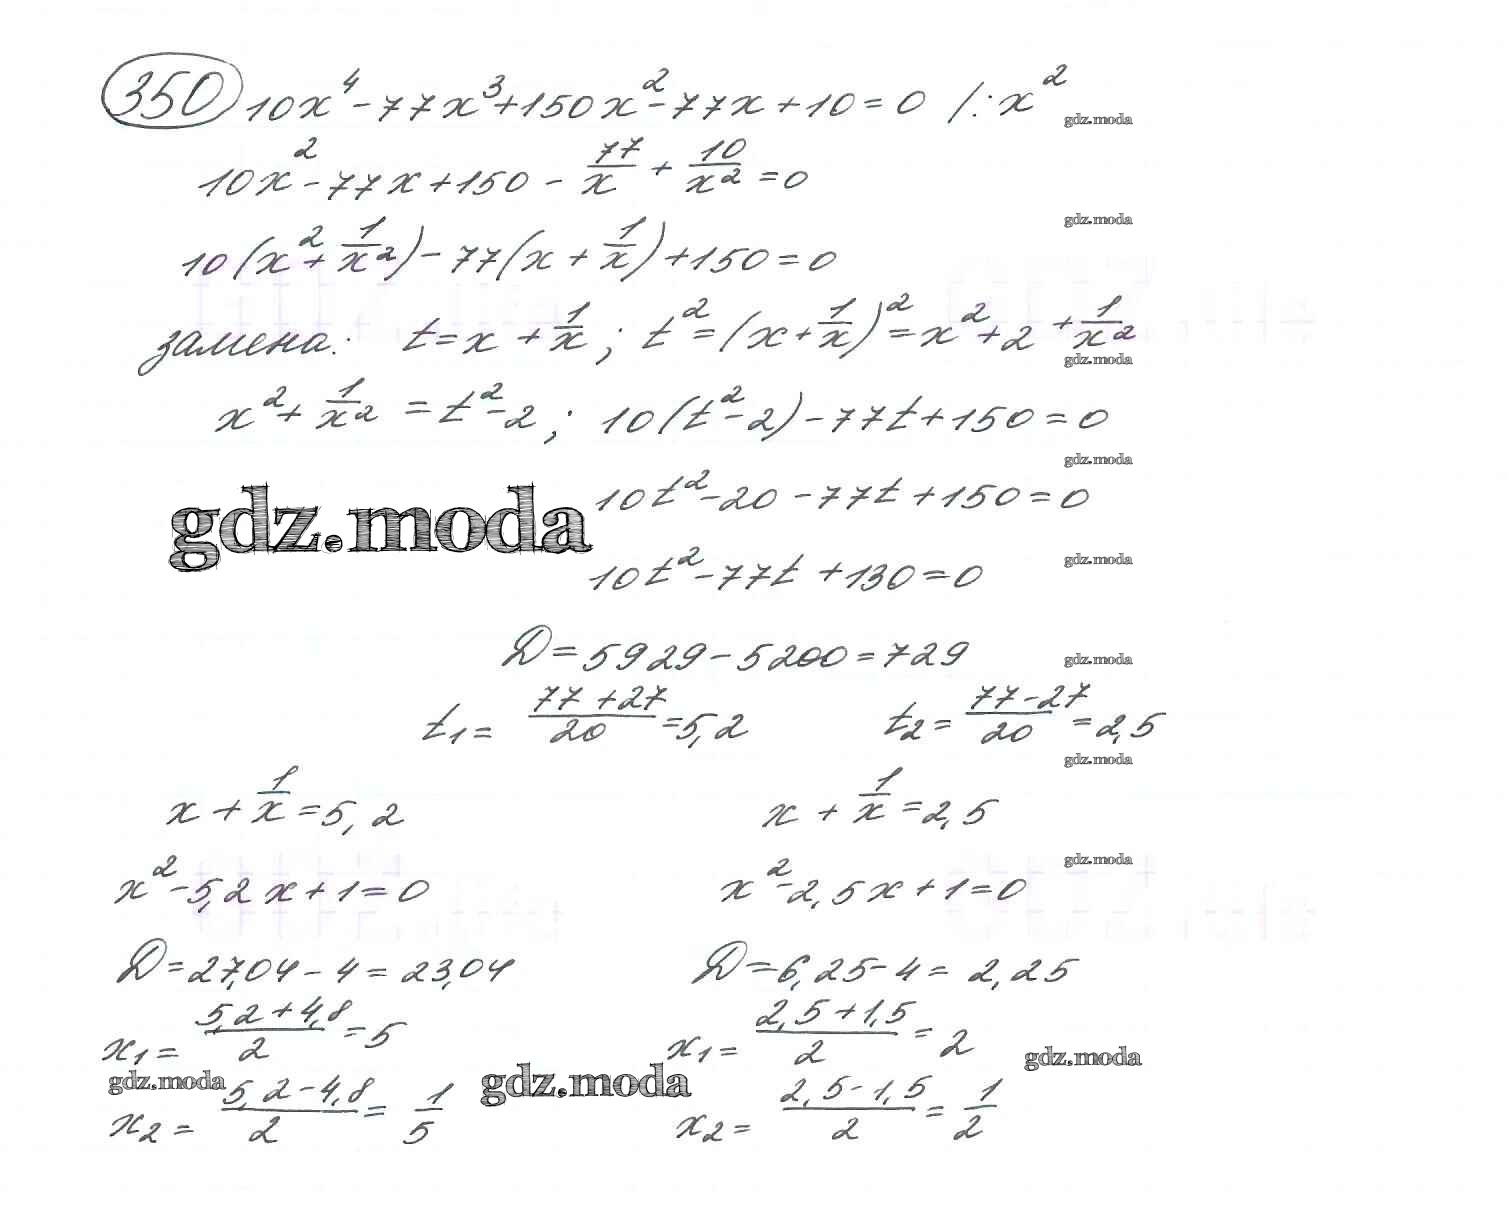 350 10x⁴ - 77x³ + 150x² - 77x + 10 = 0 /: x²
gdz.moda
10x² - 77x + 150 - 77/x + 10/x² = 0
gdz.moda
10(x² + 1/x²) - 77(x + 1/x) + 150 = 0
замена: t = x + 1/x ; t² = (x + 1/x)² = x² + 2 + 1/x²
gdz.moda
x² + 1/x² = t² - 2 ; 10(t² - 2) - 77t + 150 = 0
gdz.moda
10t² - 20 - 77t + 150 = 0
gdz.moda
gdz.moda
10t² - 77t + 130 = 0
D = 5929 - 5200 = 729
gdz.moda
t₁ = (77 + 27)/20 = 5,2 t₂ = (77 - 27)/20 = 2,5
gdz.moda
x + 1/x = 5,2 x + 1/x = 2,5
gdz.moda
x² - 5,2x + 1 = 0 x² - 2,5x + 1 = 0
D = 27,04 - 4 = 23,04 D = 6,25 - 4 = 2,25
x₁ = (5,2 + 4,8)/2 = 5 x₁ = (2,5 + 1,5)/2 = 2
gdz.moda gdz.moda gdz.moda
x₂ = (5,2 - 4,8)/2 = 1/5 x₂ = (2,5 - 1,5)/2 = 1/2